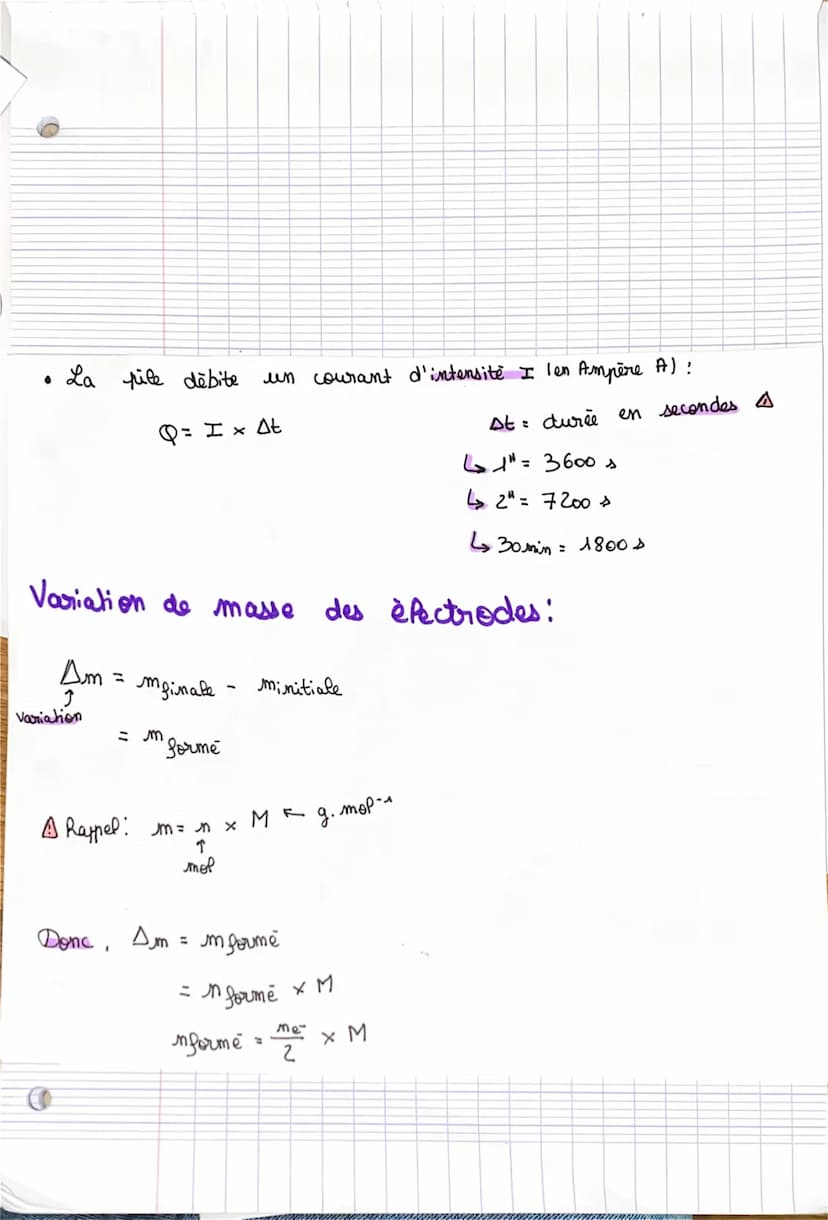 • La pile débite un courant d'intensité I (en Ampère A) :
Q = I × Δt
Δt = durée en secondes ⚠
↳ 1ᴴ = 3600 s
↳ 2ᴴ = 7200 s
↳ 30 min = 1800 s
Variation de masse des électrodes :
Δm = mfinale - minitiale
↑
variation
= m formé
⚠ Rappel : m = n × M ← g.mol⁻¹
↑
mol
Donc, Δm = m formé
= n formé × M
n formé = ne⁻/2 × M